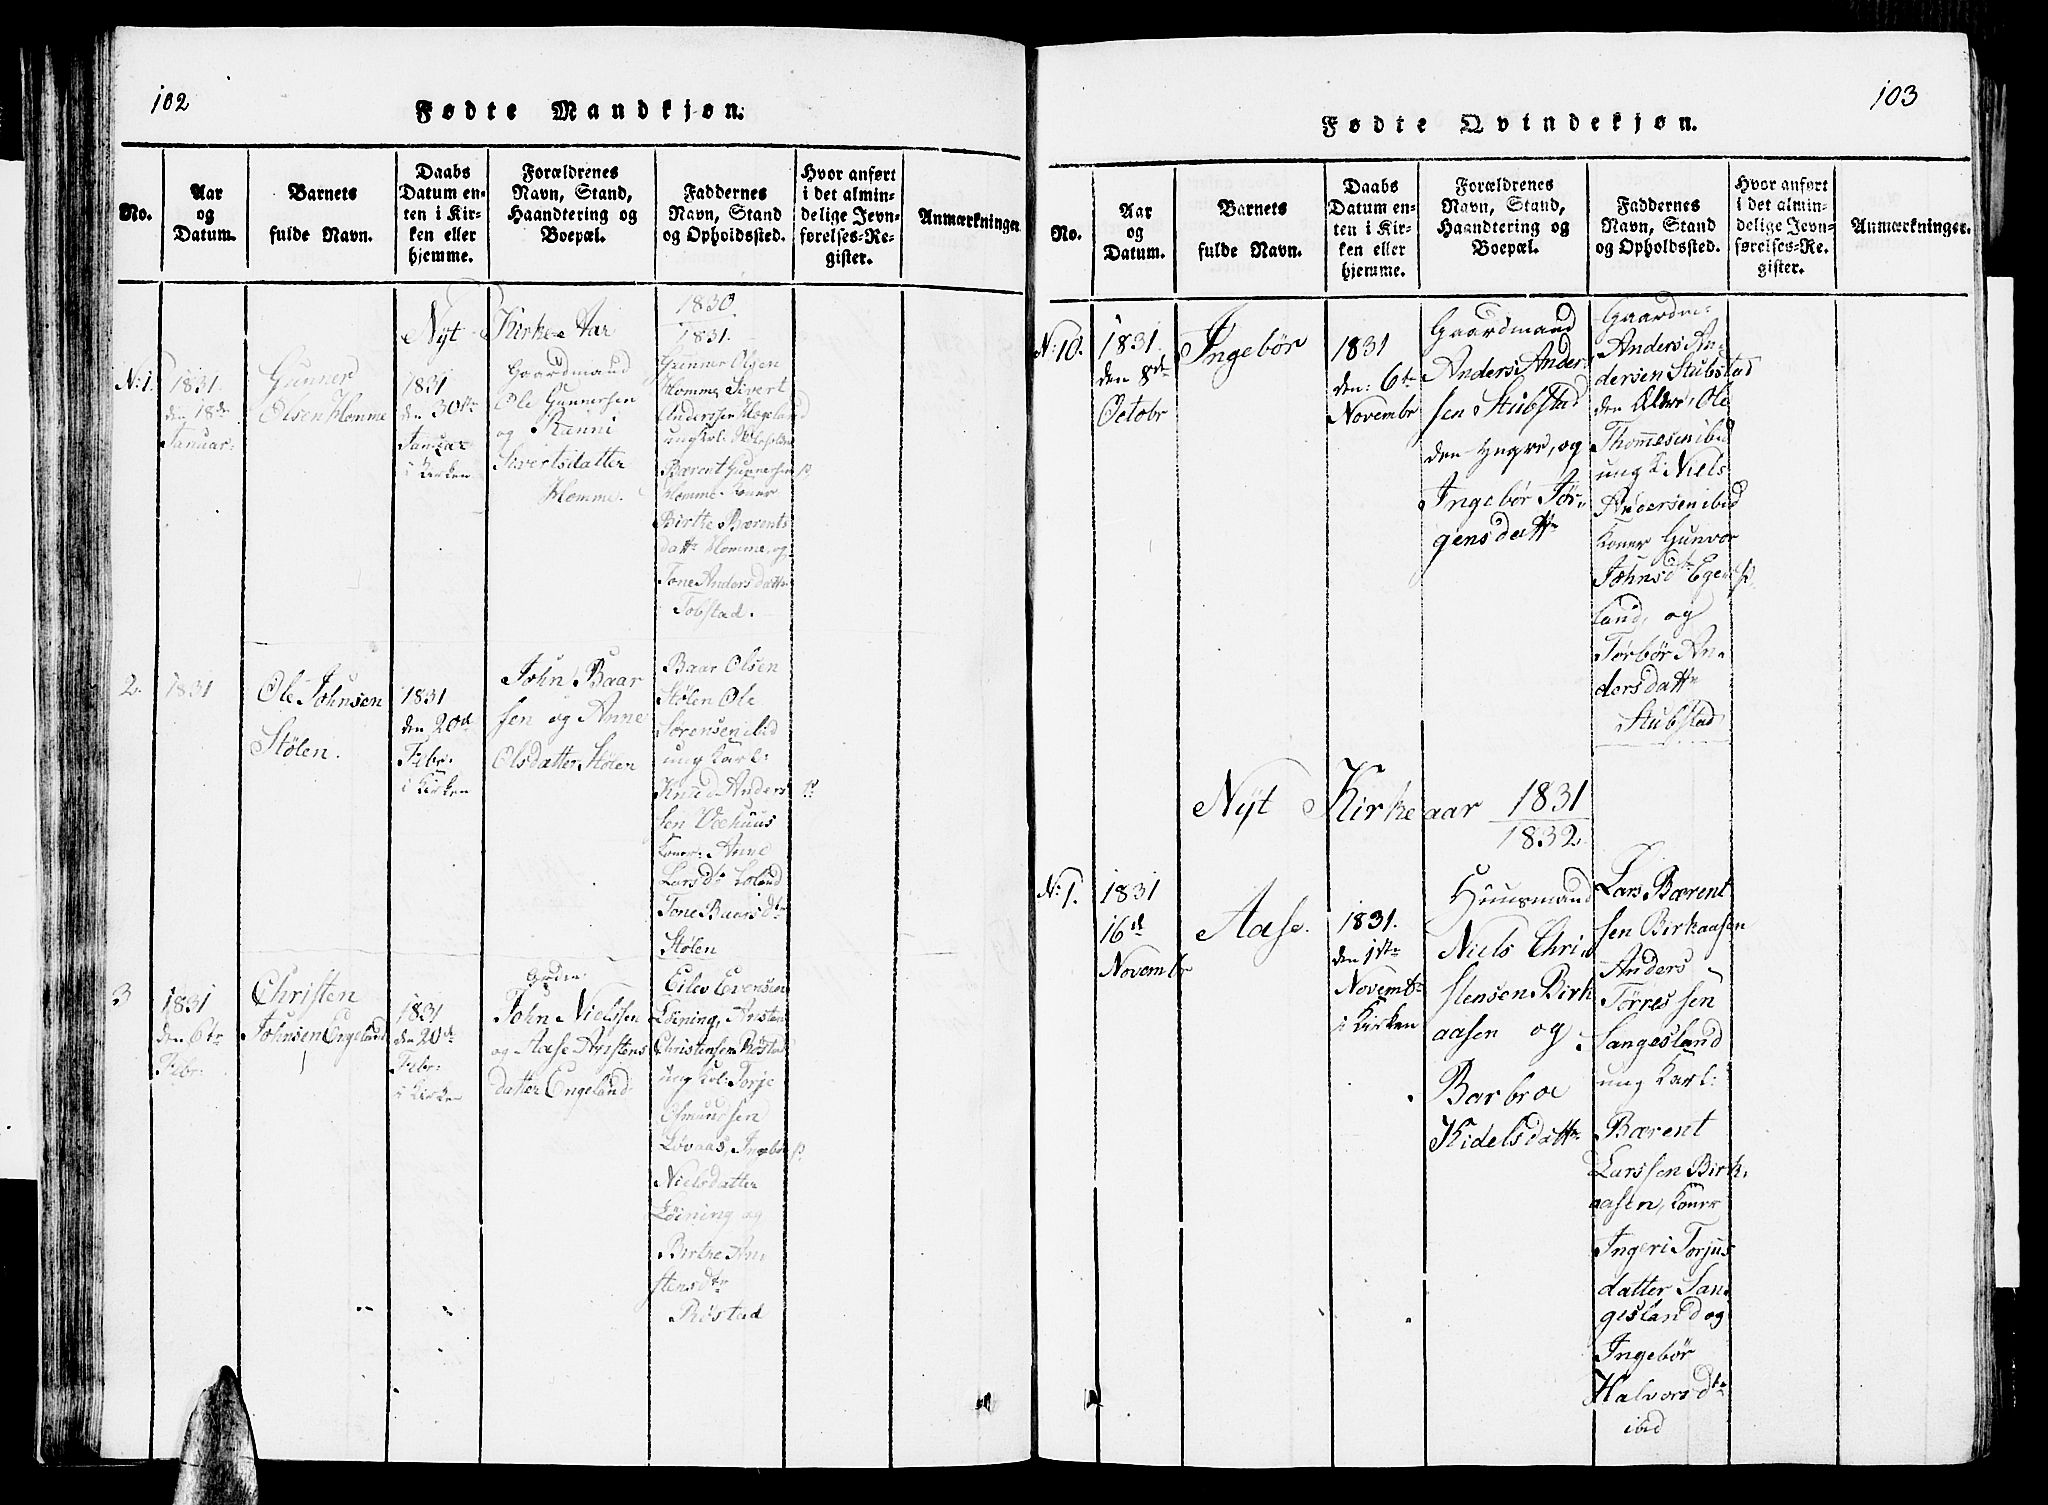 102
Fødte Mandkjøn.
No.
Aar
og
Datum.
Barnets
fulde Navn.
Daabs
Datum en-
ten i Kir-
ken eller
hjemme.
Forældrenes
Navn, Stand,
Haandtering og
Boepæl.
Faddernes
Navn, Stand
og Opholdssted.
Hvor anført
i det almin-
delige Jevn-
førelses-Re-
gister.
Anmærkninger
Nyt Kirke Aar
1830
1831.
No. 1.
1831
den 18de
Januar:
Gunner
Olsen Homme
1831
den 30te
Januar
i Kirken
Gaardmand
Ole Gunnersen
og Ranni
Sivertsdatter
Homme.
Gunner Olsen
Homme, Sivert
Andersen
ungkl:
Bærent Gunnersen
Homme. Koner
Birthe Bærents
datr Homme, og
Tone Andersdatter
Tobstad.
2.
1831
Ole Johnsen
Stølen.
1831
den 20de
Febr:
i Kirken
John Baar
sen og Anne
Olsdatter Stølen
Baar Olsen
Stølen Ole
Sørensen ibid
ung Karl:
Knud Anders
sen Veehuus
Koner: Anne
Larsdr
Tone Baarsdtr
Stølen
3
1831
den 6te
Febr:
Christen
Johnsen Engeland
1831
den 20de
Febr:
i Kirken
John Nielssen
og Aase Avstens
datter Engeland
Eilev Evensen
Løining, Avsten
Christensen Røstad
ung Kl: Torje
Osmundsen
Løvaas, Ingebør
Nielsdatter
Løining og
Birthe Av
stensdtr
Røstad
103
Fødte Qvindekjøn.
No.
Aar
og
Datum.
Barnets
fulde Navn.
Daabs
Datum en-
ten i Kir-
ken eller
hjemme.
Forældrenes
Navn, Stand,
Haandtering og
Boepæl.
Faddernes
Navn, Stand
og Opholdssted.
Hvor anført
i det almin-
delige Jevn-
førelses-Re-
gister.
Anmærkninger.
No. 10.
1831.
den 8de
Octobr
Ingebør
1831
den: 6te
Novembr
Gaardmand
Anders Ander
sen Stubstad
den Yngre, og
Ingebør Jør-
gensdattr
Gaardm:
Anders An-
dersen Stubstad
den Ældre, Ole
Thommesen ibid
ung k: Niels
Andersen ibid
Koner Gunvor
Johnsdtr Ege
land, og
Torbør An-
dersdattr
Stubstad
Nyt Kirkeaar 1831
1832
No. 1.
1831
16de
Novembr
Aase.
1831.
Novembr
i Kirken
Huusmand
Niels Chri
stensen Birk
aasen og
Barbroe
Kidelsdattr
Lars Bærent
sen Birkaasen
Anders
Tørressen
Sangesland
ung Karl:
Bærent
Larssen Birk
aasen, Koner
Ingeri Torjus
datter San-
gesland og
Ingebør
Halvorsdtr
ibid